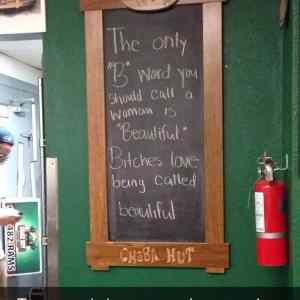 The only
"B" word you
should call a
woman is
"Beautiful"
Bitches love
being called
beautiful
CHEBA HUT
482 RAMS